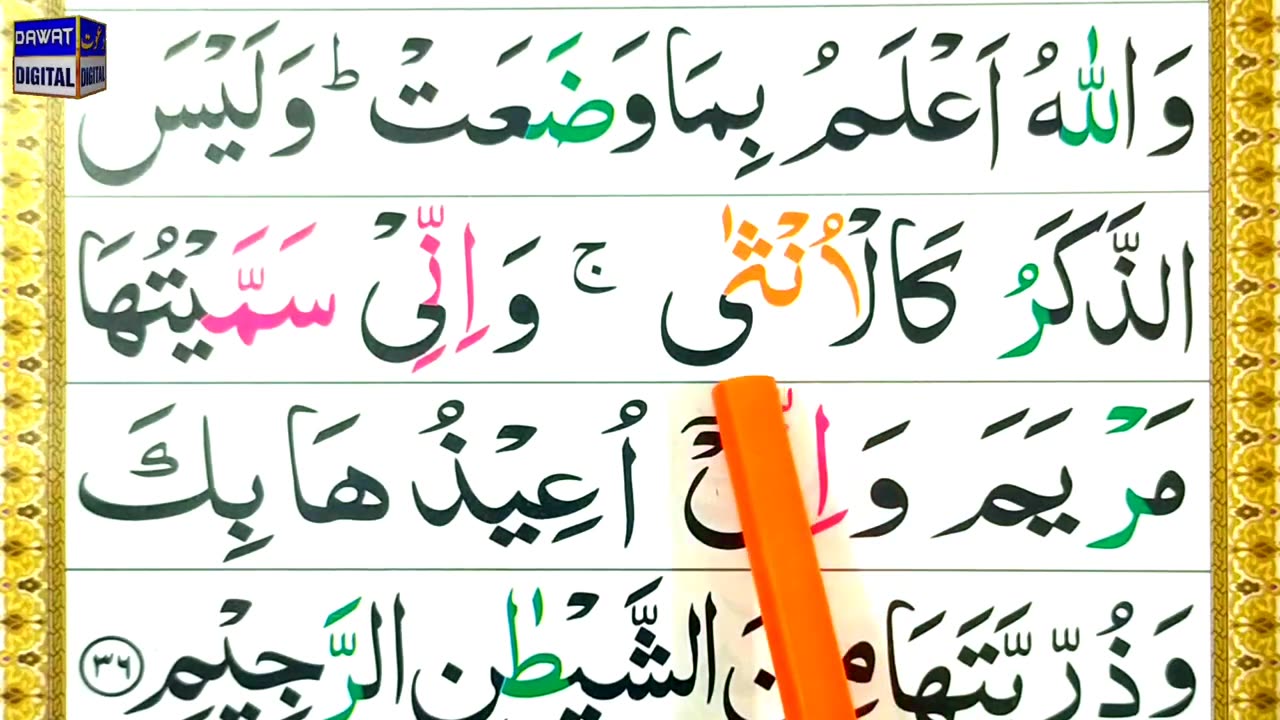 DAWAT دعوت
DIGITAL DIGITAL
وَاللّٰهُ اَعْلَمُ بِمَا وَضَعَتْ ؕ وَلَيْسَ
الذَّكَرُ كَالْاُنْثٰى ۚ وَاِنِّىْ سَمَّيْتُهَا
مَرْيَمَ وَ اُعِيْذُهَا بِكَ
وَذُرِّيَّتَهَا الشَّيْطٰنِ الرَّجِيْمِ ٣٦